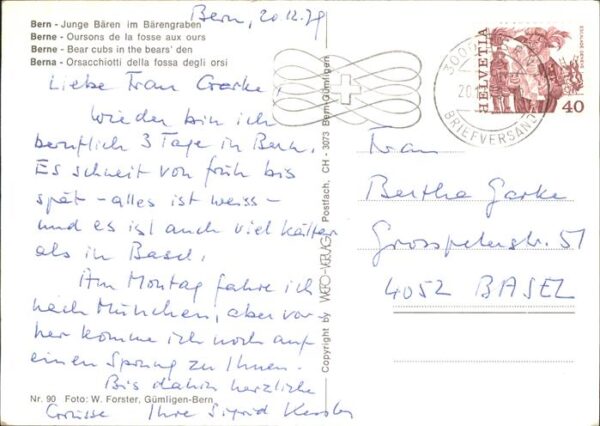 Bern, 20.12.79
Bern - Junge Bären im Bärengraben
Berne - Oursons de la fosse aux ours
Berne - Bear cubs in the bears' den
Berna - Orsacchiotti della fossa degli orsi
Liebe Frau Garke,
Wieder bin ich
beruflich 3 Tage in Bern.
Es schneit von früh bis
spät - alles ist weiss -
und es ist auch viel kälter
als in Basel.
Am Montag fahre ich
nach München, aber vor-
her komme ich noch auf
einen Sprung zu Ihnen.
Bis dahin herzliche
Grüsse Ihre Sigrid
Nr. 90 Foto: W. Forster, Gümligen-Bern
Copyright by WERO-VERLAG Postfach, CH - 3073 Bern-Gümligen
3000 BERN
20.
BRIEFVERSAND
HELVETIA
40
ESCALADE GENÈVE
Frau
Bertha Garke
Grosspeterstr. 51
4052 BASEL